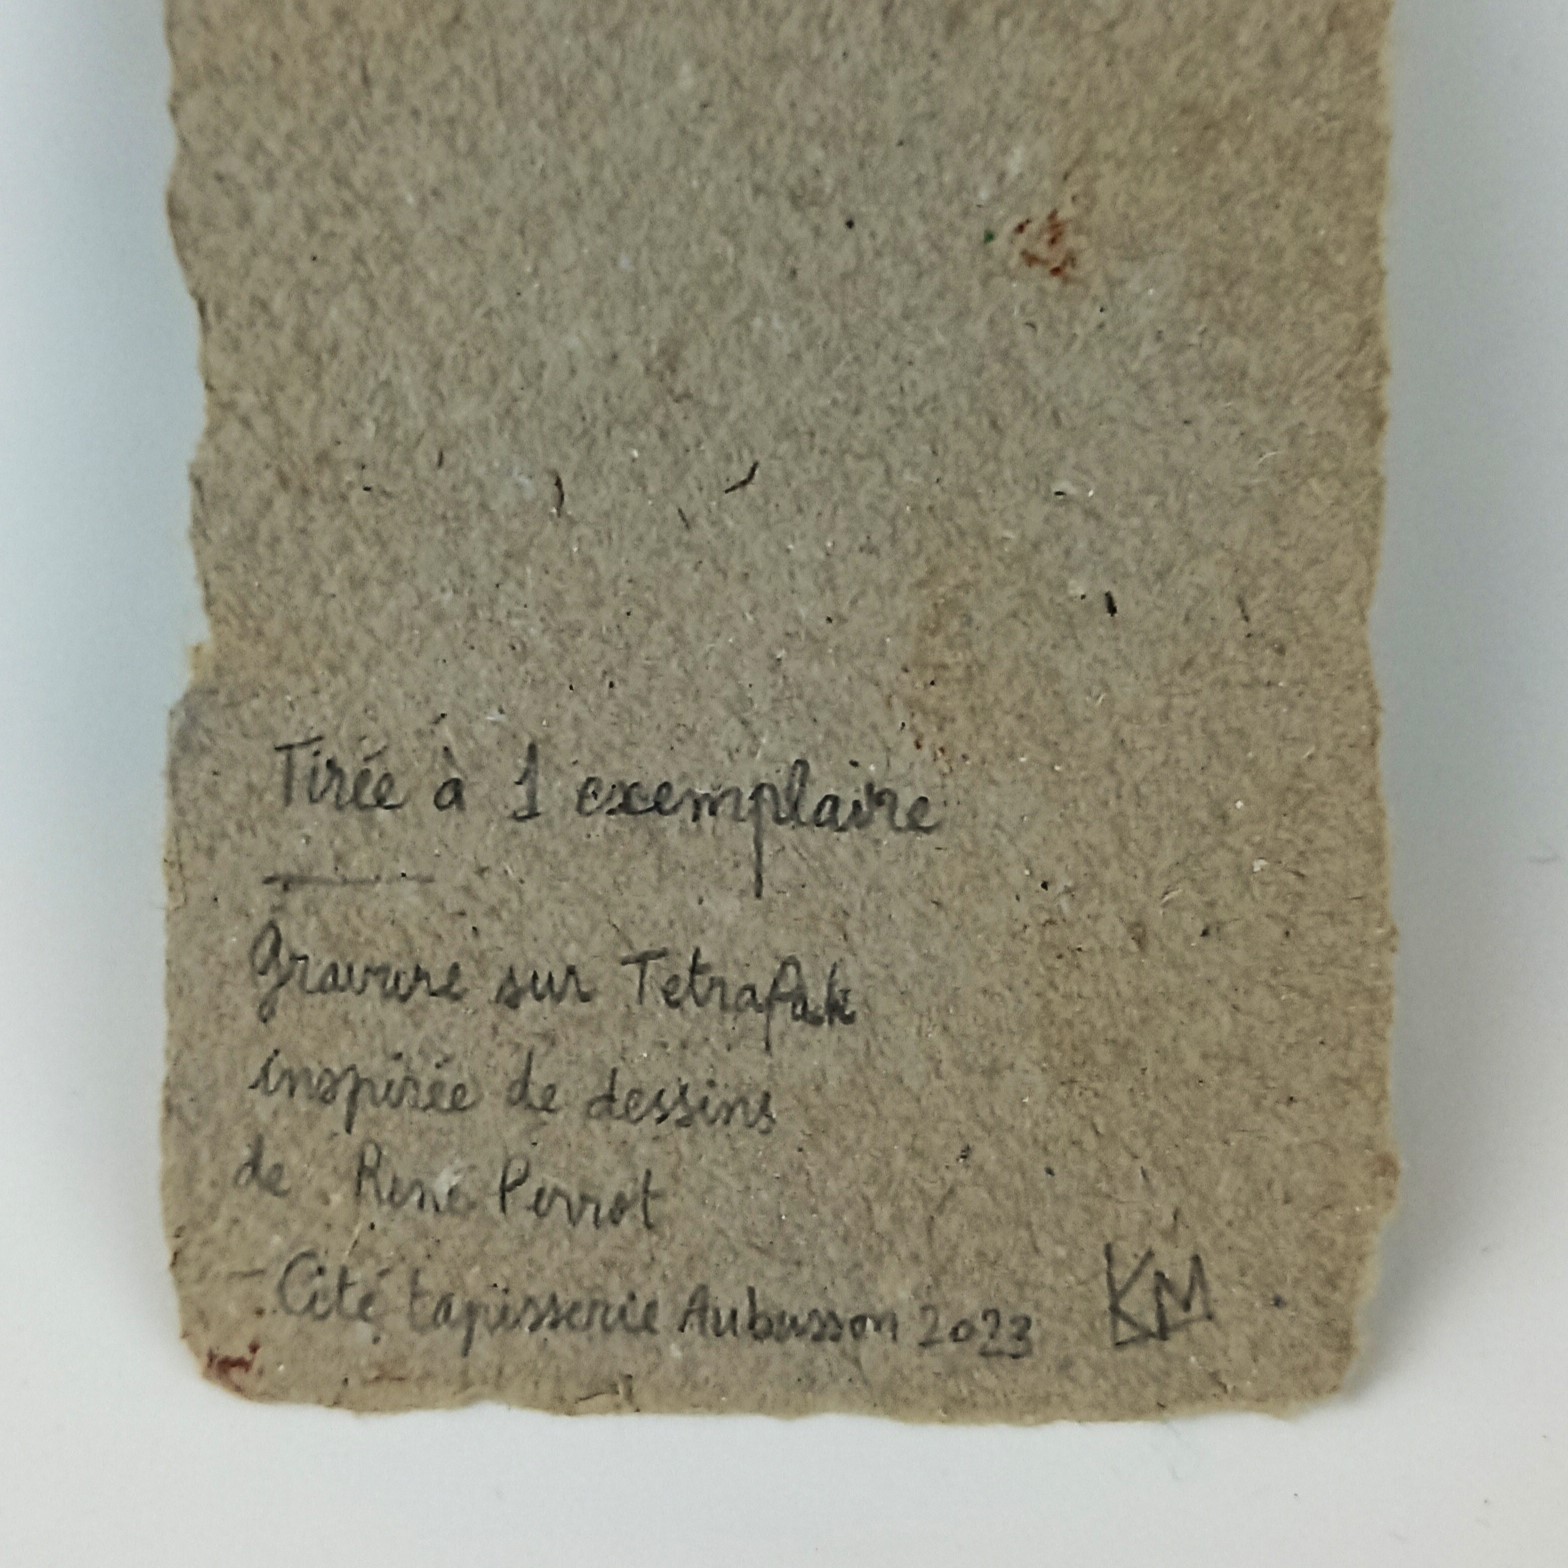 Tirée à 1 exemplaire
gravure sur TetraPak
inspirée de dessins
de René Perrot
- Cité tapisserie Aubusson 2023 KM